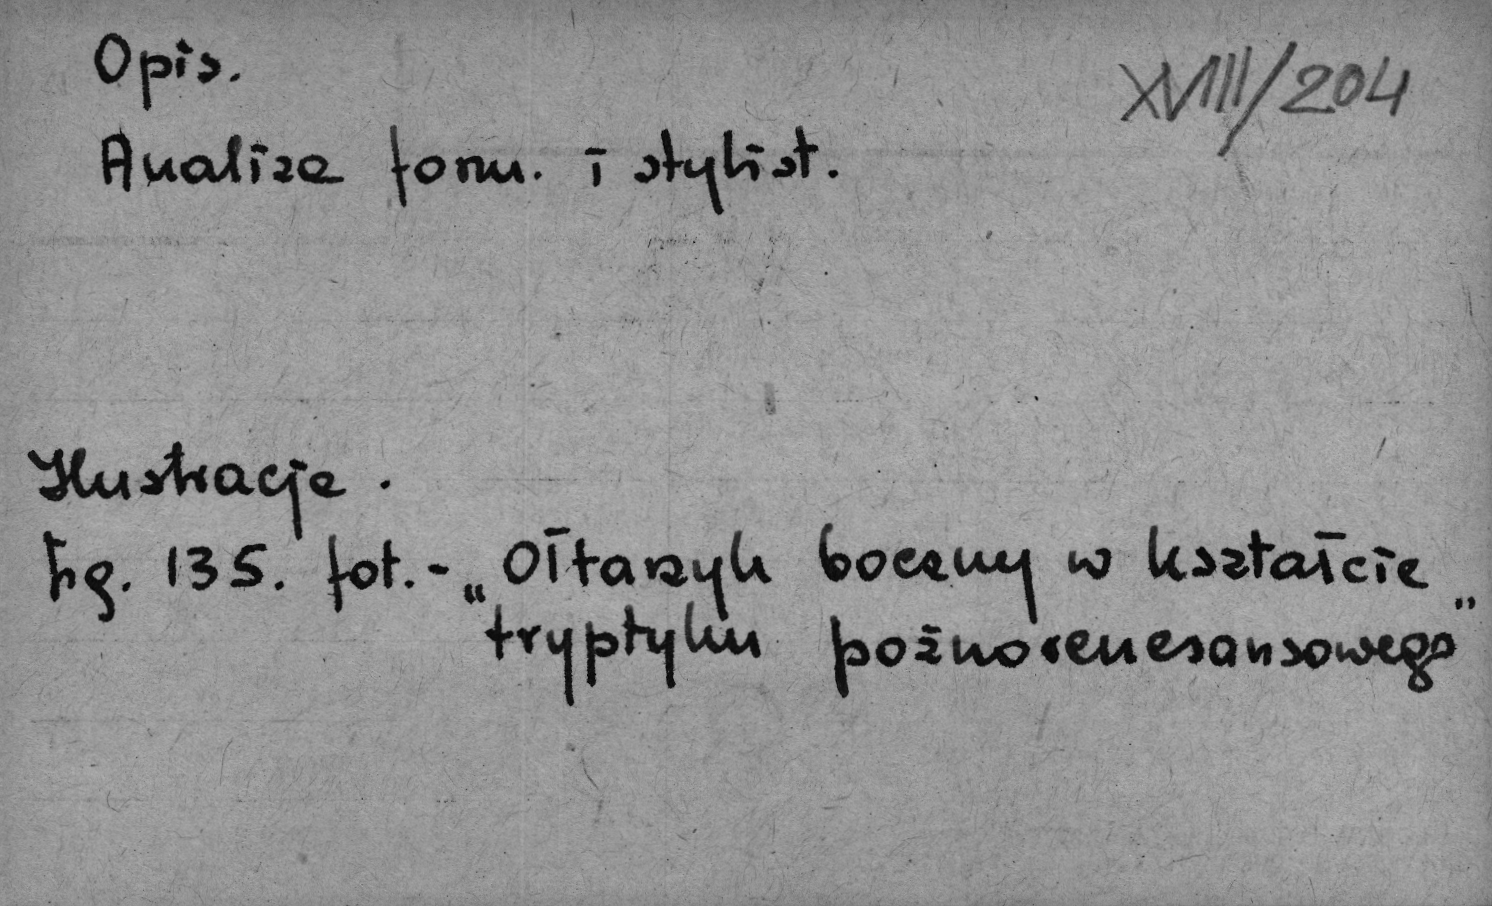 Opis.
XVIII/204
Analiza form. i stylist.
Ilustracje.
Fig. 135. fot.- „Ołtarzyk boczny w kształcie
tryptyku poźnorenesansowego”